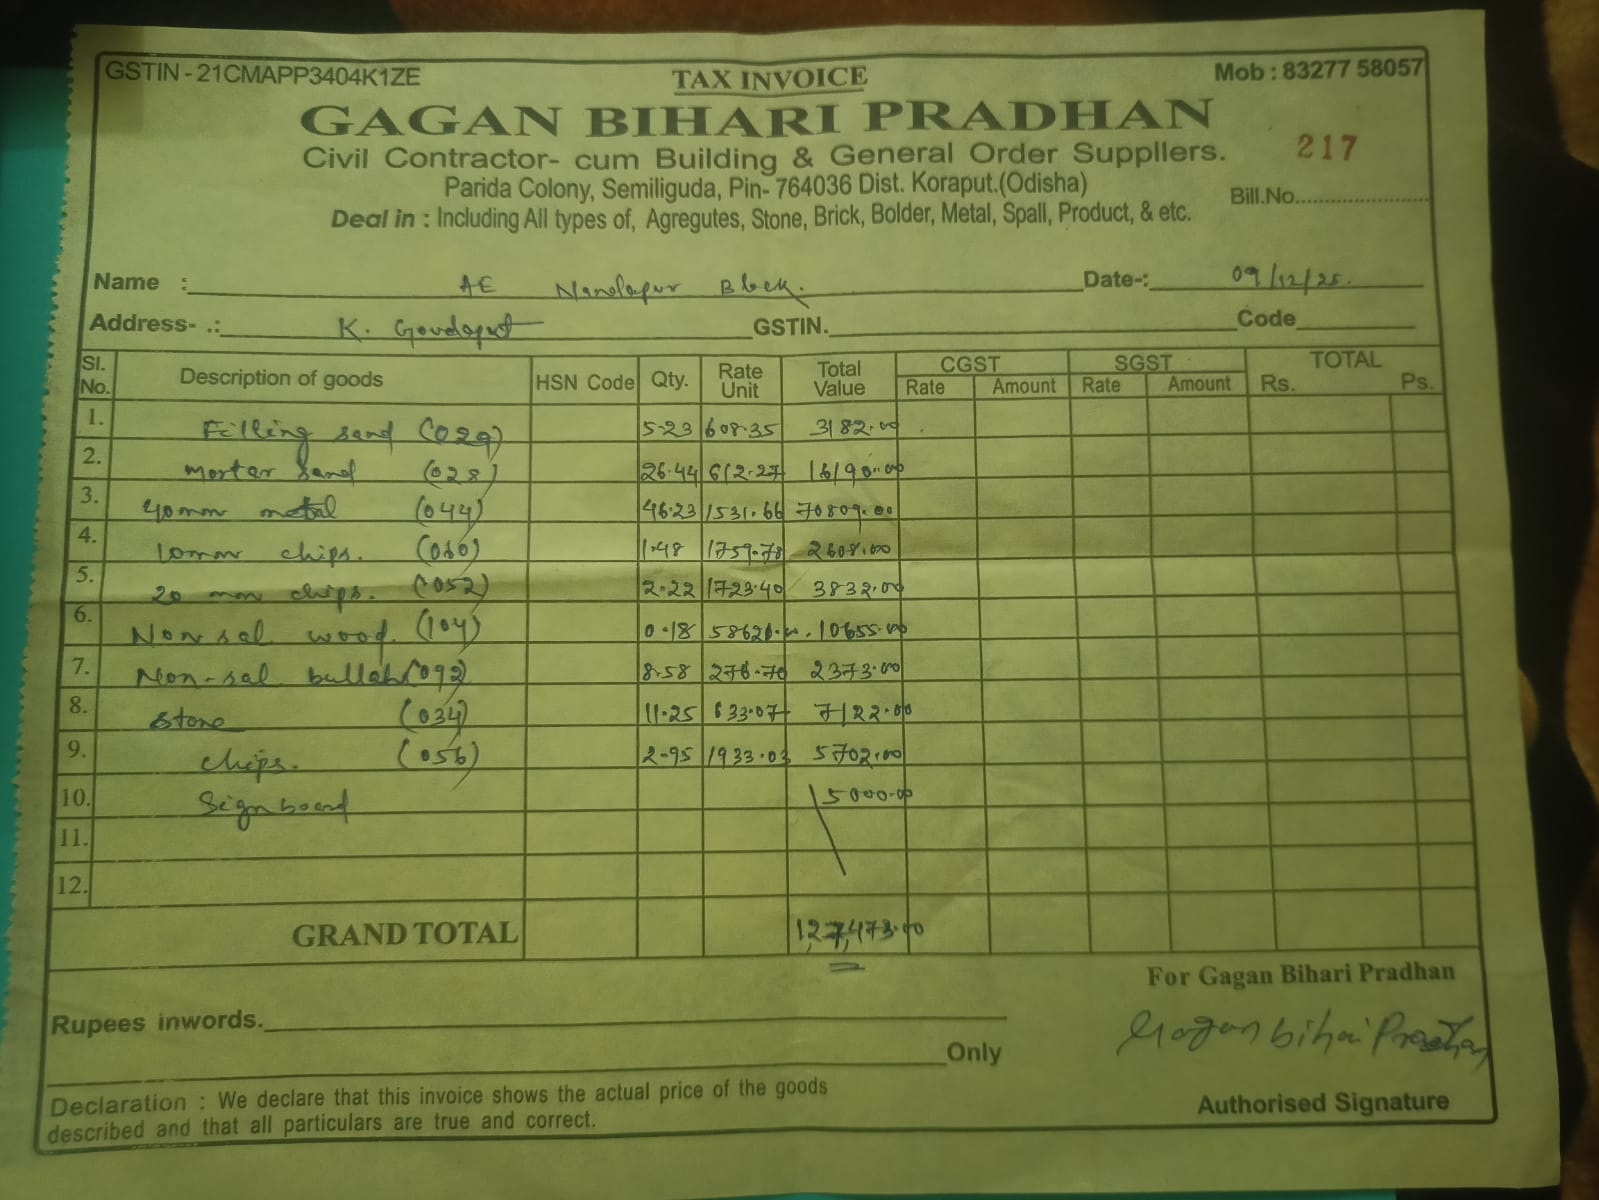 GSTIN - 21CMAPP3404K1ZE TAX INVOICE Mob : 83277 58057
GAGAN BIHARI PRADHAN
Civil Contractor- cum Building & General Order Suppllers. 217
Parida Colony, Semiliguda, Pin- 764036 Dist. Koraput.(Odisha) Bill.No.
Deal in : Including All types of, Agregutes, Stone, Brick, Bolder, Metal, Spall, Product, & etc.
Name : AE Nandapur Block. Date-: 09/12/25.
Address- .: K. Goudaput GSTIN. Code
Sl. No. Description of goods HSN Code Qty. Rate Unit Total Value CGST Rate Amount SGST Rate Amount TOTAL Rs. Ps.
1. Filling sand (029) 5.23 608.35 3182.00
2. Mortar sand (028) 26.44 612.27 16190.00
3. 40mm metal (044) 46.23 1531.66 70809.00
4. 10mm chips. (060) 1.48 1759.78 2608.00
5. 20 mm chips. (052) 2.22 1723.40 3832.00
6. Non sal wood. (104) 0.18 10655.00
7. Non-sal bullah (092) 8.58 276.70 2373.00
8. Stone (034) 11.25 633.07 7122.00
9. chips. (056) 2.95 1933.03 5702.00
10. Sign board 5000.00
11.
12.
GRAND TOTAL 1,27,473.00
For Gagan Bihari Pradhan
Rupees inwords. Gagan bihari Pradhan
Only
Declaration : We declare that this invoice shows the actual price of the goods
described and that all particulars are true and correct. Authorised Signature